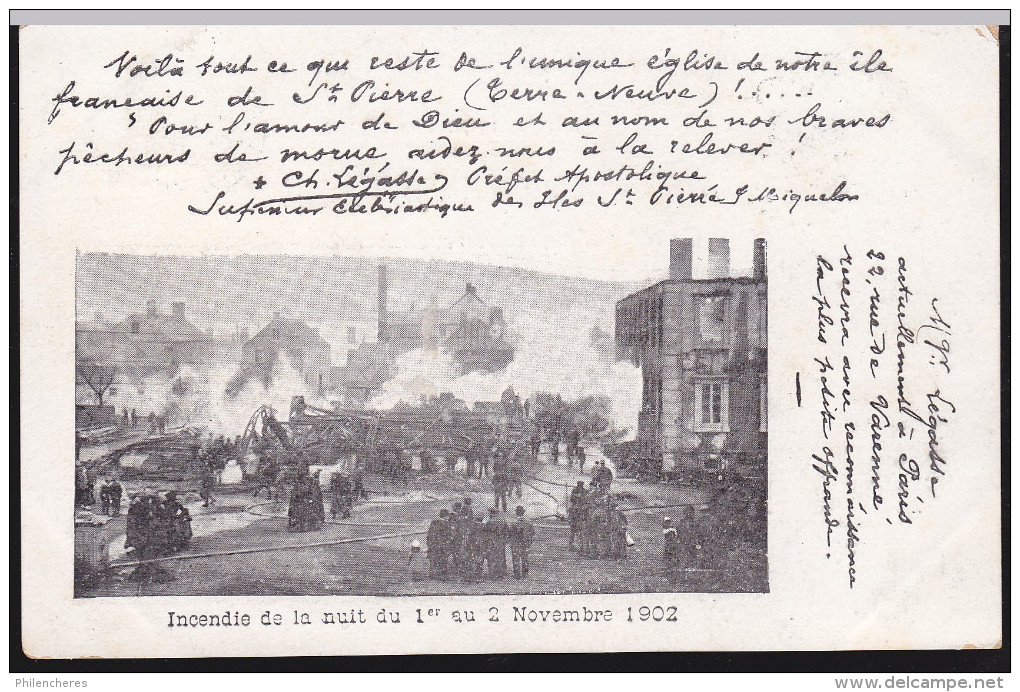 Voilà tout ce qui reste de l'unique église de notre île
française de St Pierre (Terre-Neuve) !.....
Pour l'amour de Dieu et au nom de nos braves
pêcheurs de morue, aidez-nous à la relever !
+ Ch. Légasse Préfet Apostolique
Supérieur Ecclésiastique des Iles St Pierre & Miquelon
Mgr Légasse
actuellement à Paris
22, rue de Varenne,
recevra avec reconnaissance
la plus petite offrande.
Incendie de la nuit du 1er au 2 Novembre 1902
Philencheres
www.delcampe.net